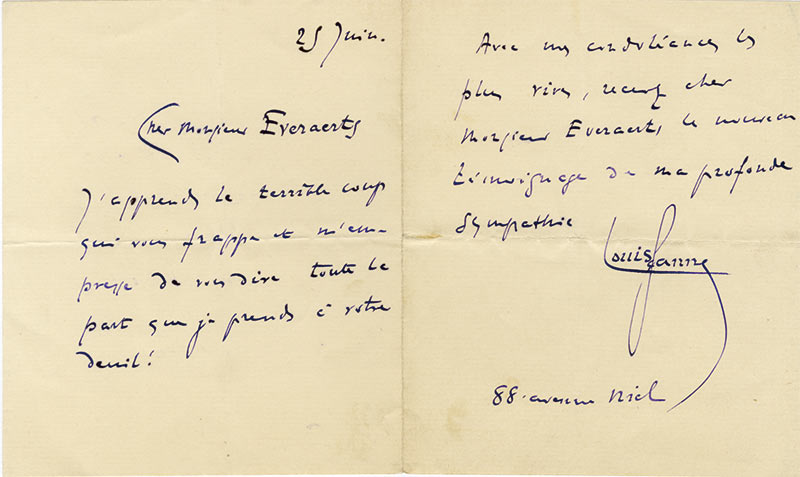 25 Juin.
Cher Monsieur Everaerts
J'apprends le terrible coup
qui vous frappe et m'em-
presse de vous dire toute la
part que je prends à votre
deuil!
Avec mes condoléances les
plus vives, recevez cher
Monsieur Everaerts, le nouveau
témoignage de ma profonde
Sympathie
Louis Ganne
88 avenue Niel